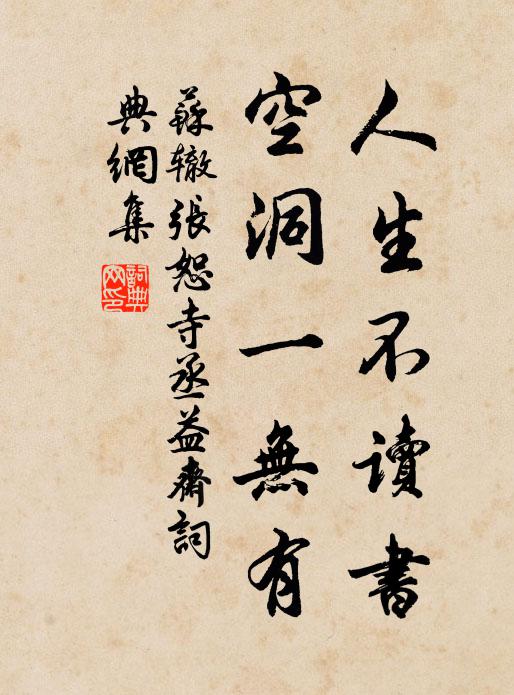 人生不讀書
空洞一無有
蘇辙張恕寺丞益齋詞
典網集
詞典网印